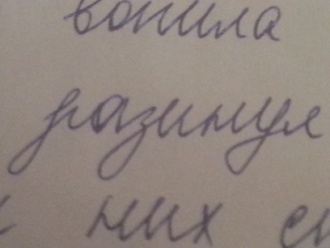 вонила
разинул
них